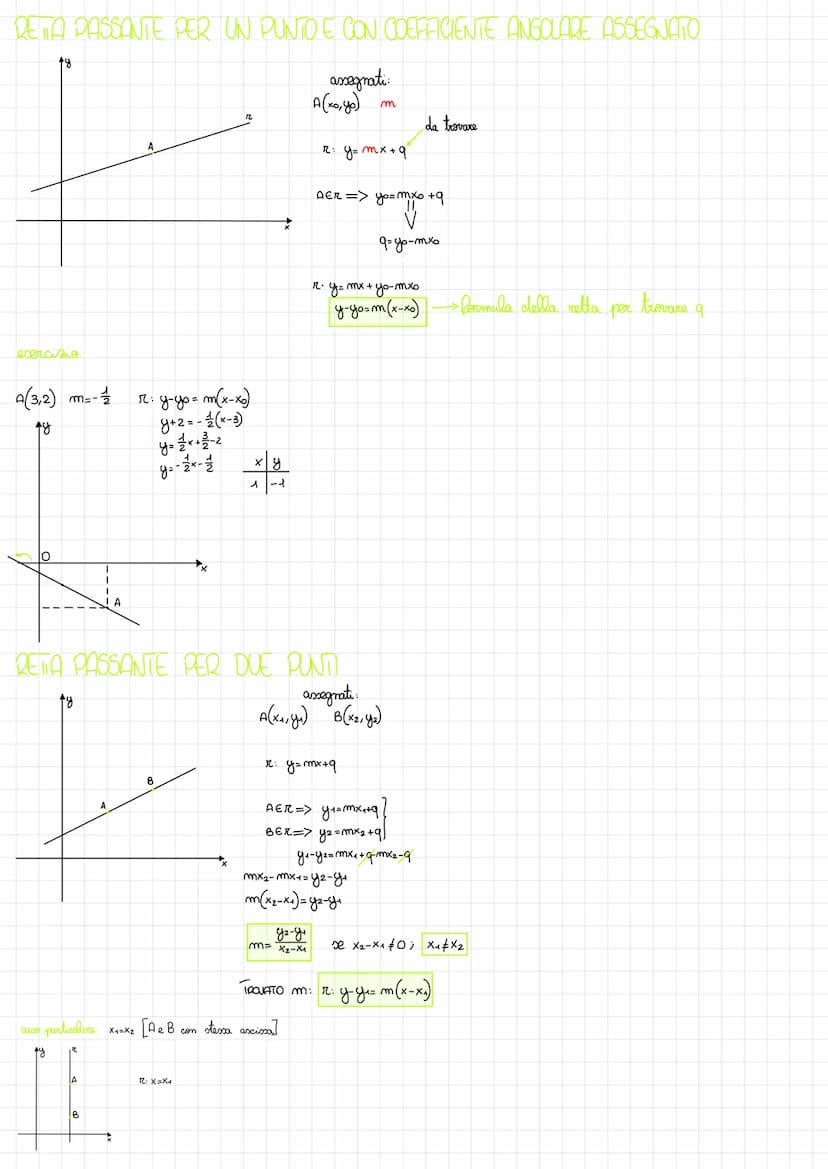 RETTA PASSANTE PER UN PUNTO E CON COEFFICIENTE ANGOLARE ASSEGNATO
y
r
A
x
assegnati:
A(x₀,y₀) m
da trovare
r: y=mx+q
A∈r => y₀=mx₀+q
⇓
q=y₀-mx₀
r: y=mx+y₀-mx₀
y-y₀=m(x-x₀) → formula della retta per trovare q
esercizio
A(3,2) m=-1/2 r: y-y₀=m(x-x₀)
y+2=-1/2(x-3)
y=1/2x+3/2-2
y=-1/2x-1/2
x y
1 -1
y
O
x
A
RETTA PASSANTE PER DUE PUNTI
y
A
B
x
assegnati:
A(x₁,y₁) B(x₂,y₂)
r: y=mx+q
A∈r => y₁=mx₁+q}
B∈r => y₂=mx₂+q}
y₁-y₂=mx₁+q-mx₂-q
mx₂-mx₁=y₂-y₁
m(x₂-x₁)=y₂-y₁
m=(y₂-y₁)/(x₂-x₁) se x₂-x₁≠0; x₁≠x₂
TROVATO m: r: y-y₁=m(x-x₁)
caso particolare x₁=x₂ [A e B con stessa ascissa]
y
r
A
B
x
r: x=x₁